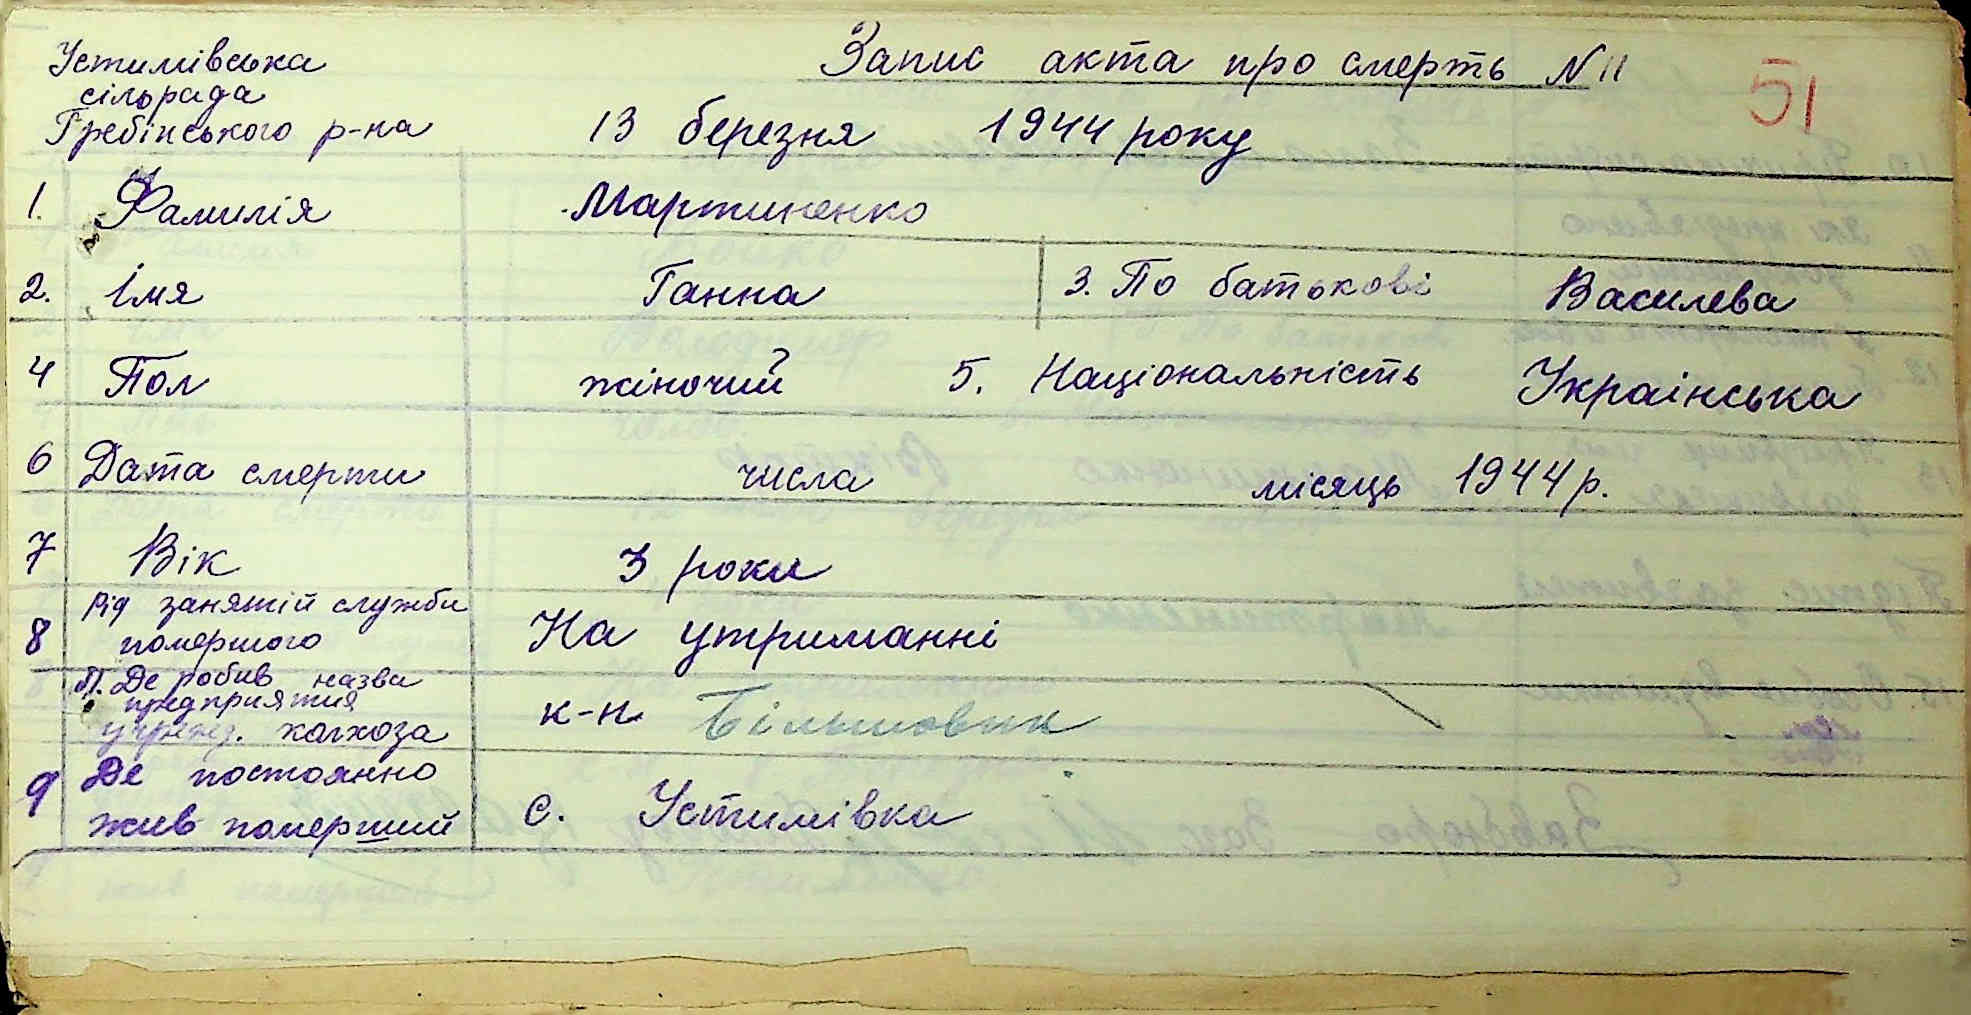 Устимівська
сільрада
Гребінського р-на
Запис акта про смерть N 11
51
13 березня 1944 року
1. Фамилія Мартиненко
2. Імя Ганна 3. По батькові Василева
4 Пол жіночий 5. Національність Українська
6 Дата смерти числа місяць 1944 р.
7 Вік 3 роки
8 Рід занятій служби
помершого На утриманні
П. Де робив назва
предприятия
учрежд. колхоза к-п Більшовик
9 Де постоянно
жив померший с. Устимівка